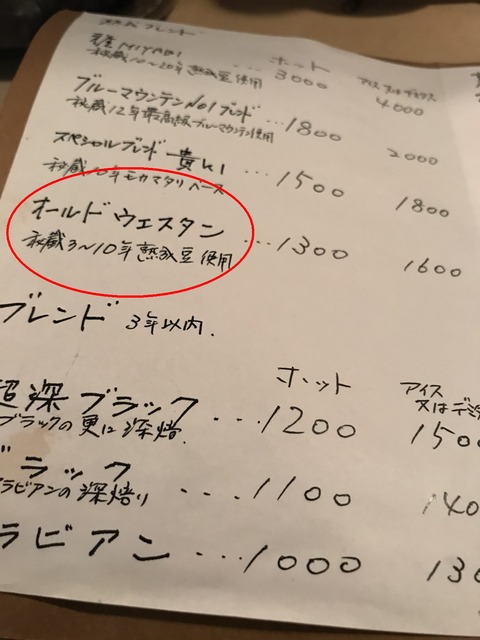 ブレンド
ホット
3000
アイス
4000
秘蔵10〜20年熟成豆使用
ブルーマウンテンNO1ブレンド …1800 2000
秘蔵12年最高級ブルーマウンテン使用
スペシャルブレンド 貴 …1500 1800
秘蔵10年モカマタリベース
オールドウェスタン …1300 1600
秘蔵3〜10年熟成豆使用
ブレンド 3年以内.
ホット アイス
又はデミ
超深ブラック …1200 150
ブラックの更に深焙.
ブラック …1100 140
ラビアンの深焙り
ラビアン …1000 130